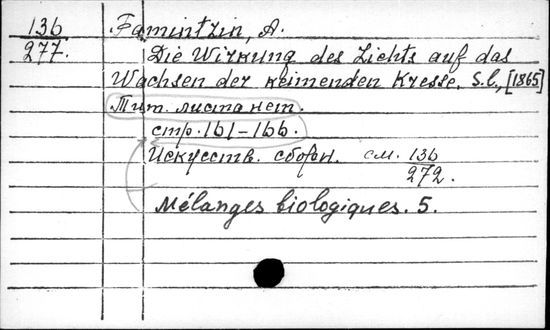 136 Famintzin, A.
277. Die Wirkung des Lichts auf das
Wachsen der keimenden Kresse. S.l., [1865]
Тит. листа нет.
стр. 161-166.
Искусств. сборн. см. 136
272.
Mélanges biologiques. 5.